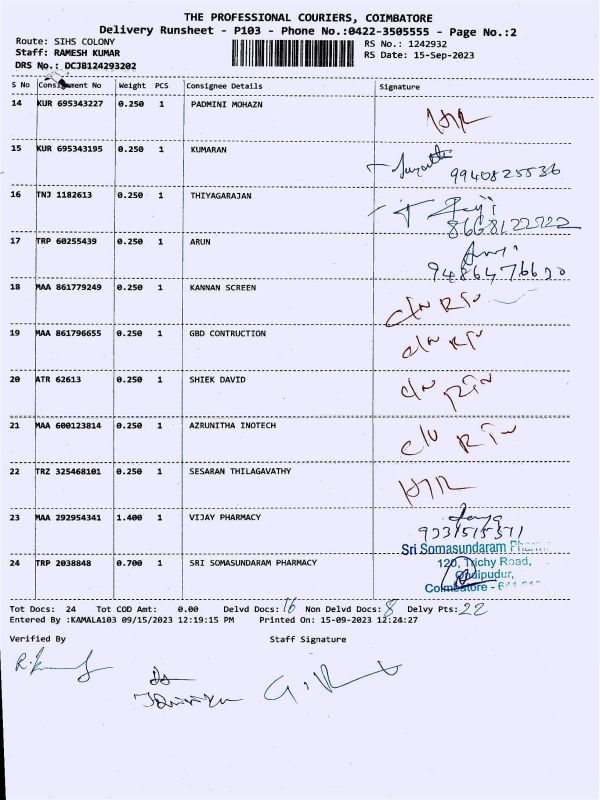 THE PROFESSIONAL COURIERS, COIMBATORE
Delivery Runsheet - P103 - Phone No.:0422-3505555 - Page No.:2
Route: SIHS COLONY RS No.: 1242932
Staff: RAMESH KUMAR RS Date: 15-Sep-2023
DRS No.: DCJB124293202
S No Consignment No Weight PCS Consignee Details Signature
14 KUR 695343227 0.250 1 PADMINI MOHAZN
15 KUR 695343195 0.250 1 KUMARAN
9940825536
16 TNJ 1182613 0.250 1 THIYAGARAJAN
8668122222
17 TRP 60255439 0.250 1 ARUN
18 MAA 861779249 0.250 1 KANNAN SCREEN
19 MAA 861796655 0.250 1 GBD CONTRUCTION
20 ATR 62613 0.250 1 SHIEK DAVID
21 MAA 600123814 0.250 1 AZRUNITHA INOTECH
22 TRZ 325468101 0.250 1 SESARAN THILAGAVATHY
23 MAA 292954341 1.400 1 VIJAY PHARMACY
Sri Somasundaram
24 TRP 2038848 0.700 1 SRI SOMASUNDARAM PHARMACY 120, Trichy Road,
Coimbatore -
Tot Docs: 24 Tot COD Amt: 0.00 Delvd Docs: 16 Non Delvd Docs: 8 Delvy Pts: 22
Entered By :KAMALA103 09/15/2023 12:19:15 PM Printed On: 15-09-2023 12:24:27
Verified By Staff Signature